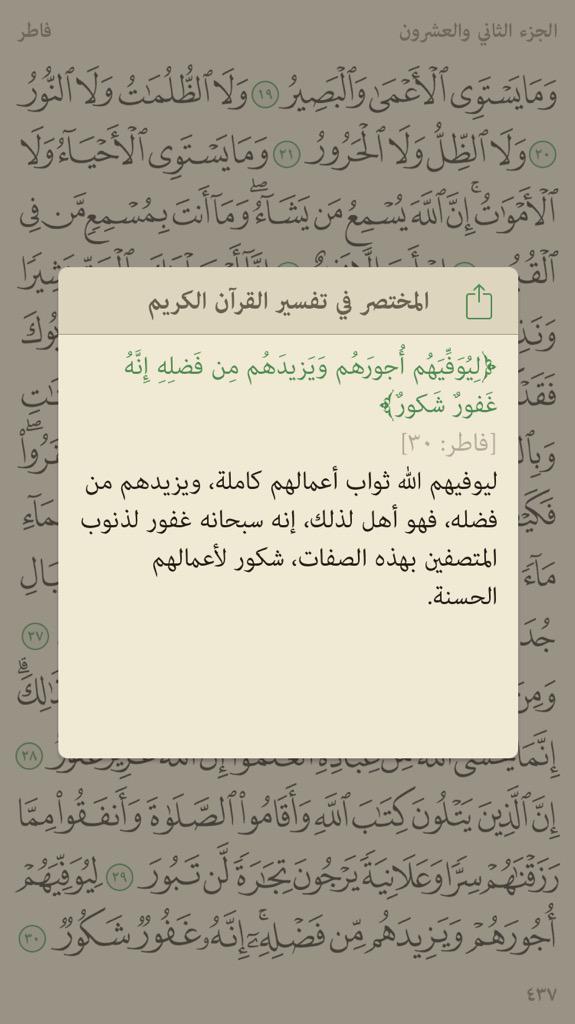 الجزء الثاني والعشرون
فاطر
وَمَا يَسْتَوِى ٱلْأَعْمَىٰ وَٱلْبَصِيرُ ١٩ وَلَا ٱلظُّلُمَٰتُ وَلَا ٱلنُّورُ
٢٠ وَلَا ٱلظِّلُّ وَلَا ٱلْحَرُورُ ٢١ وَمَا يَسْتَوِى ٱلْأَحْيَآءُ وَلَا
ٱلْأَمْوَٰتُ ۚ إِنَّ ٱللَّهَ يُسْمِعُ مَن يَشَآءُ ۖ وَمَآ أَنتَ بِمُسْمِعٍ مَّن فِى
المختصر في تفسير القرآن الكريم
﴿لِيُوَفِّيَهُم أُجورَهُم وَيَزيدَهُم مِن فَضلِهِ إِنَّهُ
غَفورٌ شَكورٌ﴾
[فاطر: ٣٠]
ليوفيهم الله ثواب أعمالهم كاملة، ويزيدهم من
فضله، فهو أهل لذلك، إنه سبحانه غفور لذنوب
المتصفين بهذه الصفات، شكور لأعمالهم
الحسنة.
٢٧
٢٨
إِنَّ ٱلَّذِينَ يَتْلُونَ كِتَٰبَ ٱللَّهِ وَأَقَامُوا۟ ٱلصَّلَوٰةَ وَأَنفَقُوا۟ مِمَّا
رَزَقْنَٰهُمْ سِرًّا وَعَلَانِيَةً يَرْجُونَ تِجَٰرَةً لَّن تَبُورَ ٢٩ لِيُوَفِّيَهُمْ
أُجُورَهُمْ وَيَزِيدَهُم مِّن فَضْلِهِۦٓ ۚ إِنَّهُۥ غَفُورٌ شَكُورٌ ٣٠
٤٣٧